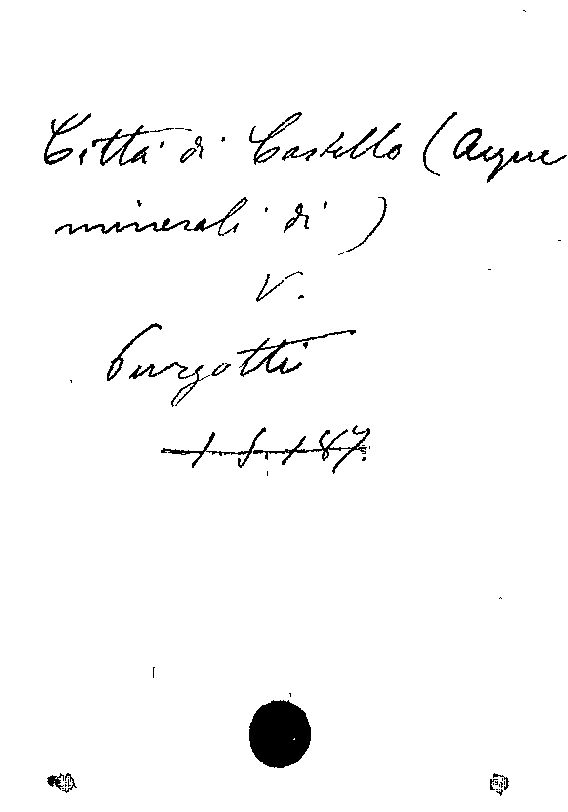 Città di Castello (Acque
minerali di)
V.
Purgotti
1. S. 187.